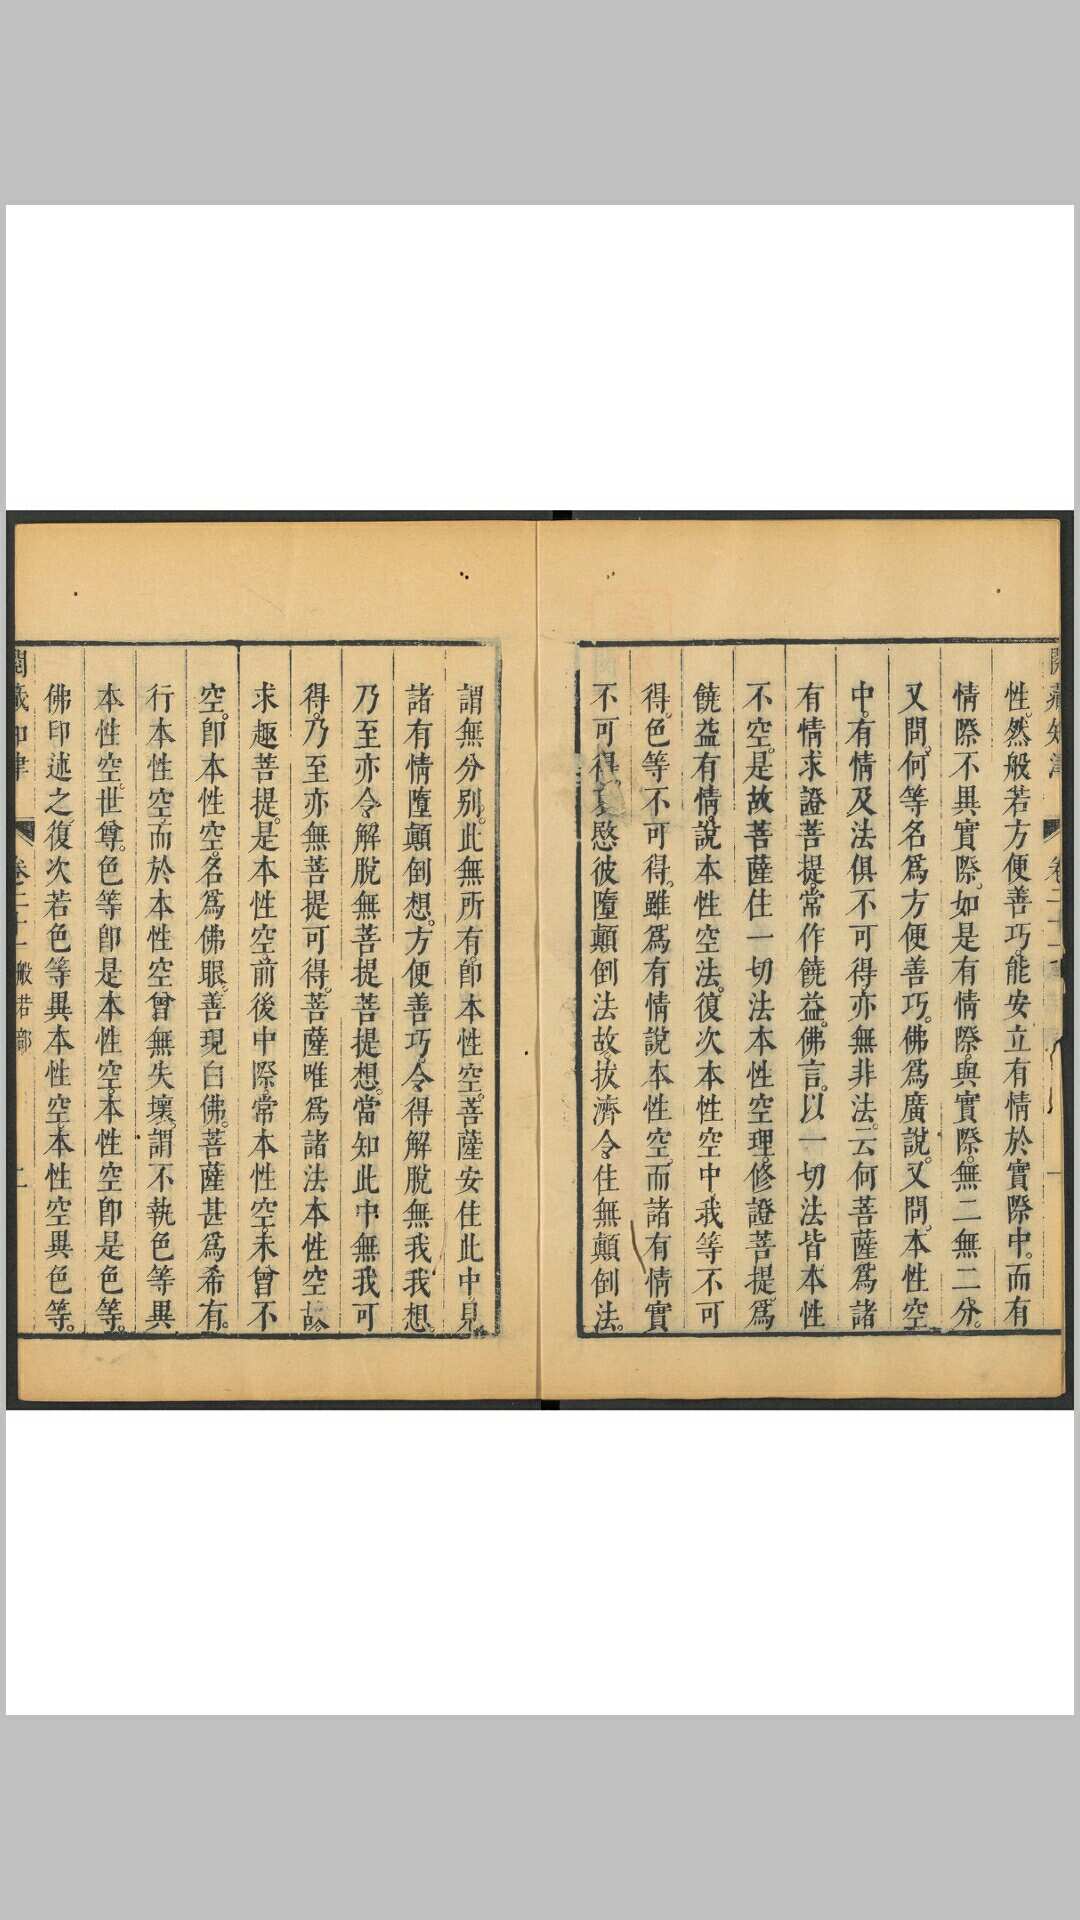 閱藏知津 卷二十一
性。然般若方便善巧。能安立有情於實際中。而有
情際不異實際。如是有情際與實際。無二無二分。
又問。何等名爲方便善巧。佛爲廣說。又問。本性空
中。有情及法俱不可得。亦無非法。云何菩薩爲諸
有情求證菩提。常作饒益。佛言。以一切法皆本性
不空。是故菩薩住一切法本性空理。修證菩提。爲
饒益有情。說本性空法。復次本性空中。我等不可
得。色等不可得。雖爲有情說本性空。而諸有情實
不可得。哀愍彼墮顛倒法故。拔濟令住無顛倒法。
謂無分別。此無所有。卽本性空。菩薩安住此中。見
諸有情墮顛倒想。方便善巧。令得解脫無我我想。
乃至亦令解脫無菩提菩提想。當知此中無我可
得。乃至亦無菩提可得。菩薩唯爲諸法本性空故
求趣菩提。是本性空前後中際。常本性空。未曾不
空。卽本性空。名爲佛眼。善現白佛。菩薩甚爲希有。
行本性空。而於本性空曾無失壞。謂不執色等異
本性空。世尊。色等卽是本性空。本性空卽是色等。
佛印述之。復次若色等異本性空。本性空異色等。
閱藏知津 卷二十一 般若部 二